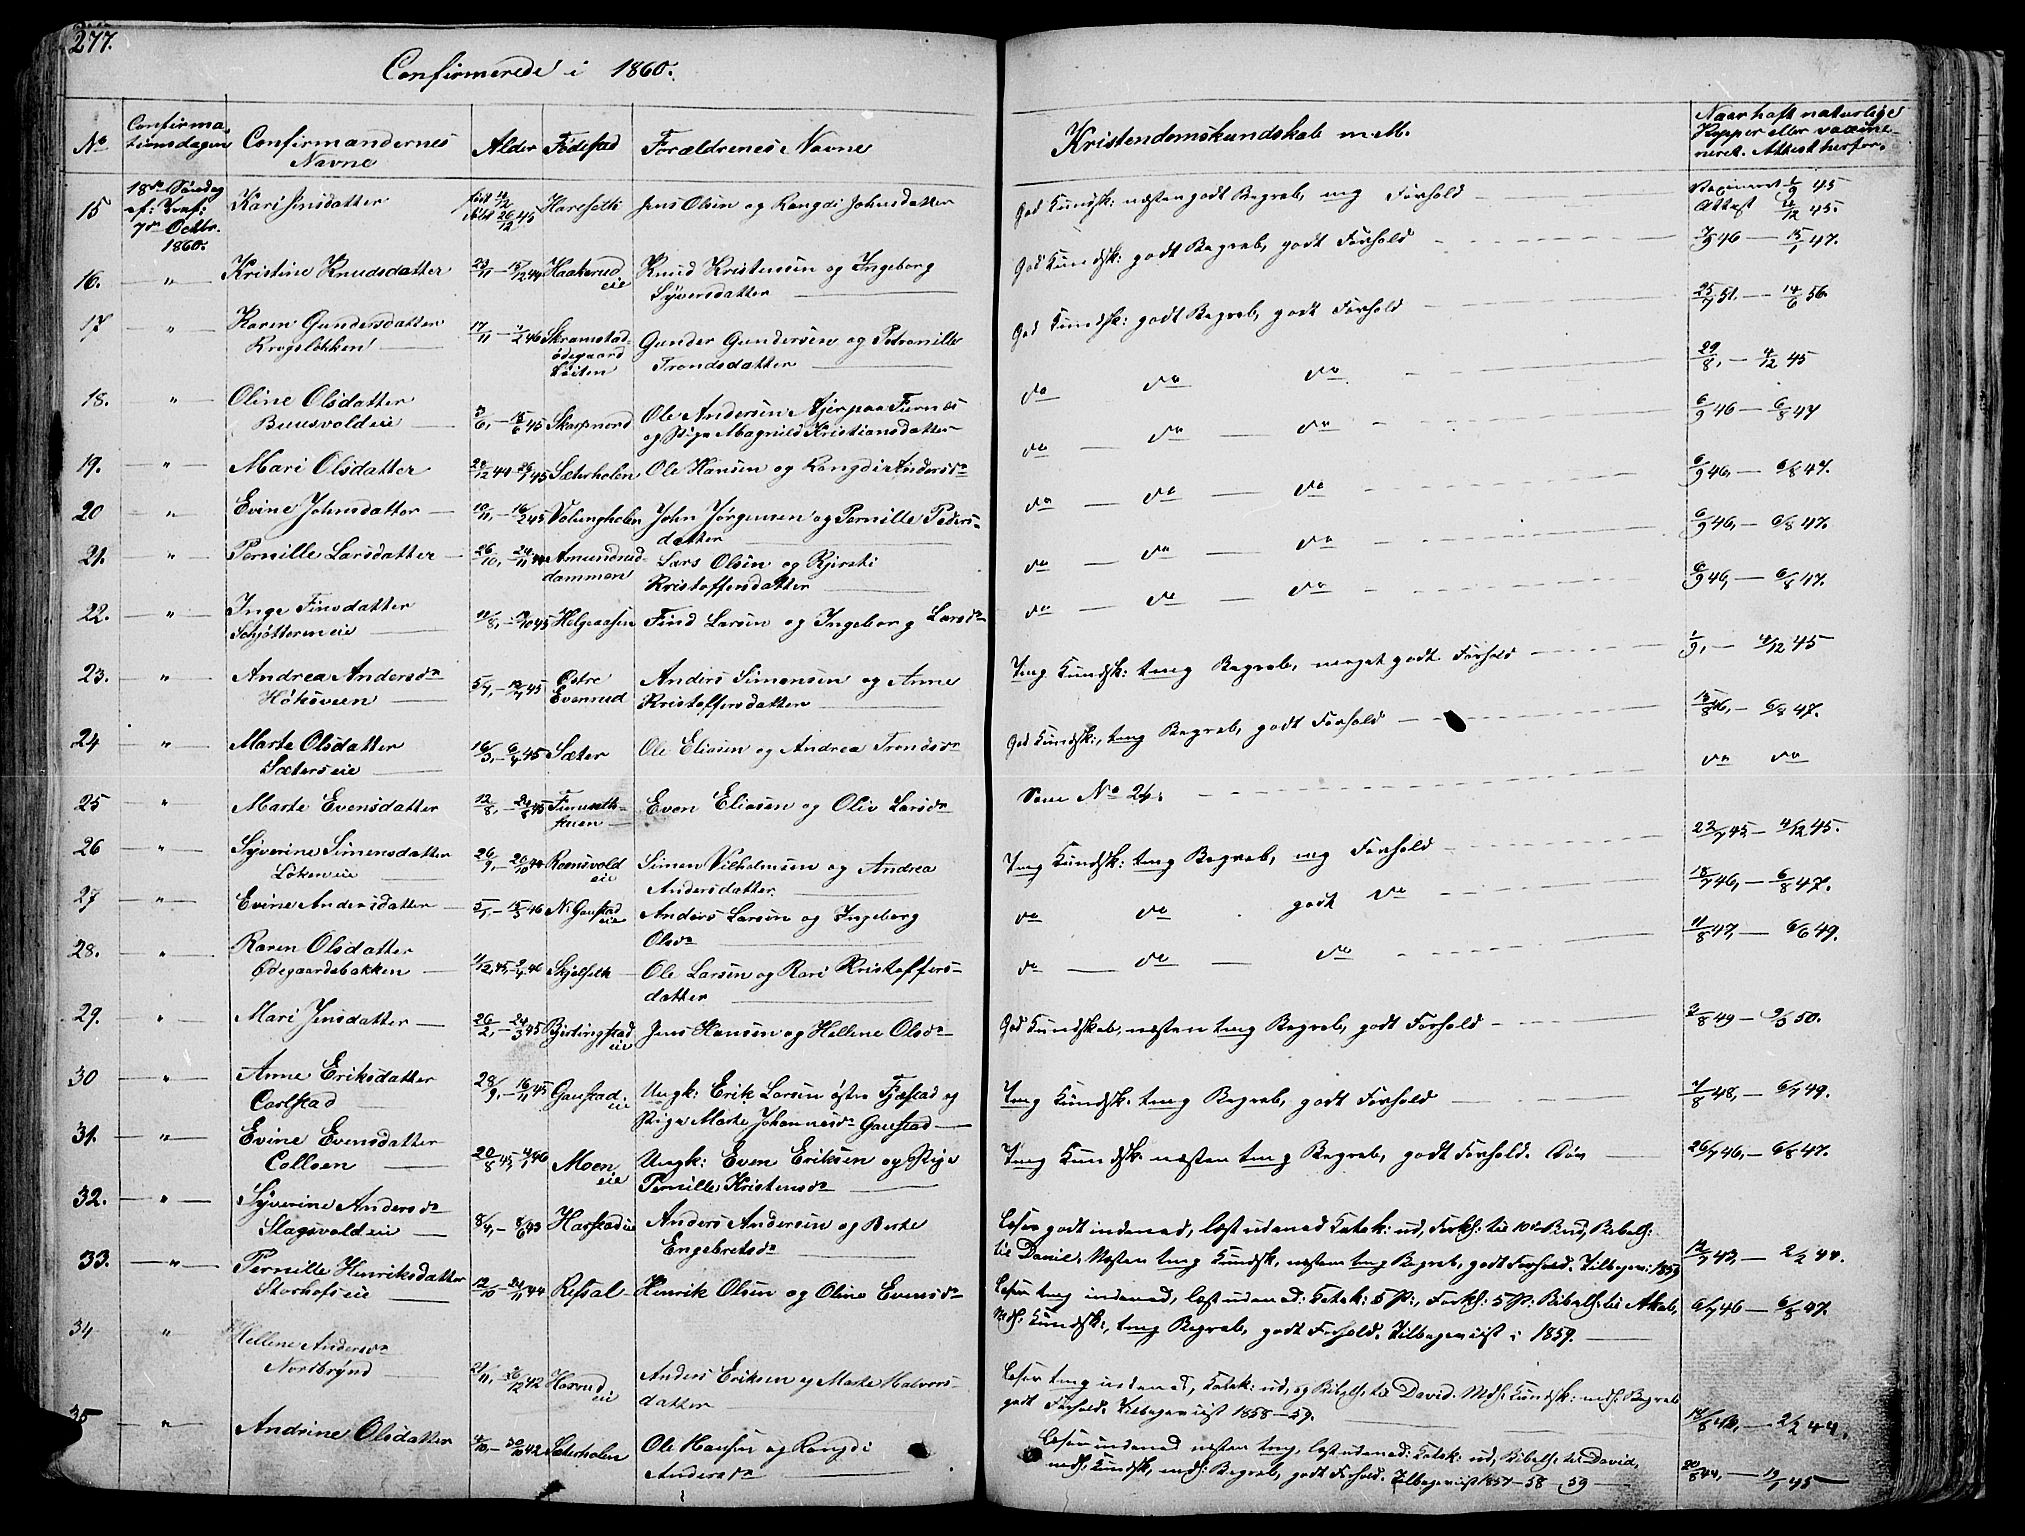 277.
Confirmerede i 1860.
No
Confirma-
tionsdagen
Confirmandernes
Navne
Alder
Fødested
Forældrenes Navne
Kristendomskundskab m. M.
Naar haft naturlige
Kopper eller vaccine-
neret. Attest herfor.
15
18de Søndag
ef: Tref:
7de Octbr.
1860.
Kari Jensdatter
Harseth
Jens Olsen og Rangdi Johnsdatter
God Kundsk: næsten godt Begreb, mg Forhold
Vaccineret 1/9 45
Attest 4/12 45.
16. " Kristine Knudsdatter
Haakerud
eie
Knud Kristensen og Ingeborg
Syversdatter
God Kundsk: godt Begreb, godt Forhold
7/9 46 — 15/1 47.
17 " Karen Gundersdatter
Krogsløkken
17/11 — 2/2 46
Skramstad
ødegaard
Løiten
Gunder Gundersen og Petronille
Trondsdatter
God Kundsk: godt Begreb, godt Forhold
25/7 51. — 14/6 56.
18. " Oline Olsdatter
Buusvoldeie
3/6, — 15/6 45
Skarpnord
Ole Andersen Stjerpaa Furnes
og Pige Magnild Kristiansdatter
do do do
29/8, — 4/12 45
19. " Mari Olsdatter
20/12 44 — 26/1 45
Sæterholen
Ole Hansen og Rangdi Andersdr
do do do
6/9 46 — 6/8 47
20 " Evine Johnsdatter
10/11, — 16/2 45
Volungholen
John Jørgensen og Pernille Peders-
datter
do do do
6/9 46, — 6/8 47.
21. " Pernille Larsdatter
26/10, — 24/11 44
Amundrud
dammen
Lars Olsen og Kjersti
Kristoffersdatter
do do do
6/9 46, — 6/8 47.
22. " Inge Finsdatter
Schjøtterneie
Helgeaasen
Find Larsen og Ingeborg Larsdr
do do do
6/9 46, — 6/8 47.
23. " Andrea Andersdr
Høksveen
5/4, — 13/4 45
Østre
Evenrud
Anders Simensen og Anne
Kristoffersdatter
Tmg Kundsk: tmg Begreb, meget godt Forhold
1/9, — 4/12 45
24 " Marte Olsdatter
Sæterseie
16/3, — 6/4 45
Sæter
Ole Eliasen og Andrea Trondsdr
God Kundsk:, tmg Begreb, godt Forhold
13/8 46, — 6/8 47.
25 " Marte Evensdatter
12/8, — 24/8 45
Finseth-
stuen
Even Eliasen og Oliv Larsdr
Som No 24.
do do
26 " Syverine Simensdatter
Løkeneie
26/9, — 20/10 44
Ramsvold
eie
Simen Vilhelmsen og Andrea
Andersdatter
Tmg Kundsk: tmg Begreb, mg Forhold
22/7 45 — 4/12 45.
27 " Evine Andersdatter
5/1, — 15/3 46
N. Gaustad
eie
Anders Larsen og Ingeborg
Olsdr
do do godt do
18/7 46, — 6/8 47.
28. " Karen Olsdatter
Ødegaardsbakken
4/12 45, — 2/1 46
Skjelseth
Ole Larsen og Kari Kristoffers-
datter
do do do
11/8 47, — 6/6 49.
29. " Mari Jensdatter
26/2, — 24/3 45
Bjerkingstad
eie
Jens Hansen og Hellene Olsdr
God Kundskab, næsten tmg Begreb, godt Forhold
2/8 49 — 9/3 50.
30 " Anne Eriksdatter
Carlstad
28/9, — 16/11 45
Gaustad
eie
Ungk: Erik Larsen østre Fjæstad og
Pige Marte Johannesdr Gaustad
Tmg Kundsk: tmg Begreb, godt Forhold
7/8 48, — 6/7 49.
31. " Evine Evensdatter
Colloen
20/8 45, — 4/1 46
Moen
eie
Ungk: Even Eriksen og Pige
Pernille Kristensdr
Tmg Kundsk: næsten tmg Begreb, godt Forhold. Døv
26/7 46, — 6/8 47.
32. " Syverine Andersdr
Slagsvoldeie
8/4, — 8/6 43
Harstadeie
Anders Andersen og Berte
Engebretsdr
Læser godt indenad, læst udenad Katek: ud, Forkl: til 10de Bud, Bibelh:
til Daniel, Næsten tmg Kundsk, næsten tmg Begreb, godt Forhold. Tilbagevi: 1859
12/7 43, — 2/2 44.
33. " Pernille Henriksdatter
Storhofseie
12/10 — 24/11 44
Refsal
Henrik Olsen og Oline Evensdr
Læser tmg indenad, læst udenad: Katek: 5 P:, Forkl: 5 P: Bibelh: til Akab,
Mdl: Kundsk:, tmg Begreb, godt Forhold. Tilbagevist i 1859.
6/7 46 — 6/8 47.
34 " Hellene Andersdr
Nortbrynd
21/11, — 26/12 42
Hosrud
eie
Anders Eriksen og Marte Halvors-
datter
Læser tmg indenad, Katek: ud, og Bibelh: til David. Mdl: Kundsk: mdl: Begreb
godt Forhold. Tilbagevist 1858—59.
14/8 43, — 2/2 44.
35 " Andrine Olsdatter
4/10, — 30/10 42
Sæterholen
Ole Hansen og Rangdi
Andersdr
Læser indenad næsten tmg, læst udenad: Katek: ud, Bibelh: til David,
mdl: Kundsk, mdl: Begreb, godt Forhold. Tilbagevist 1857—58—59
20/8 44, — 19/1 45